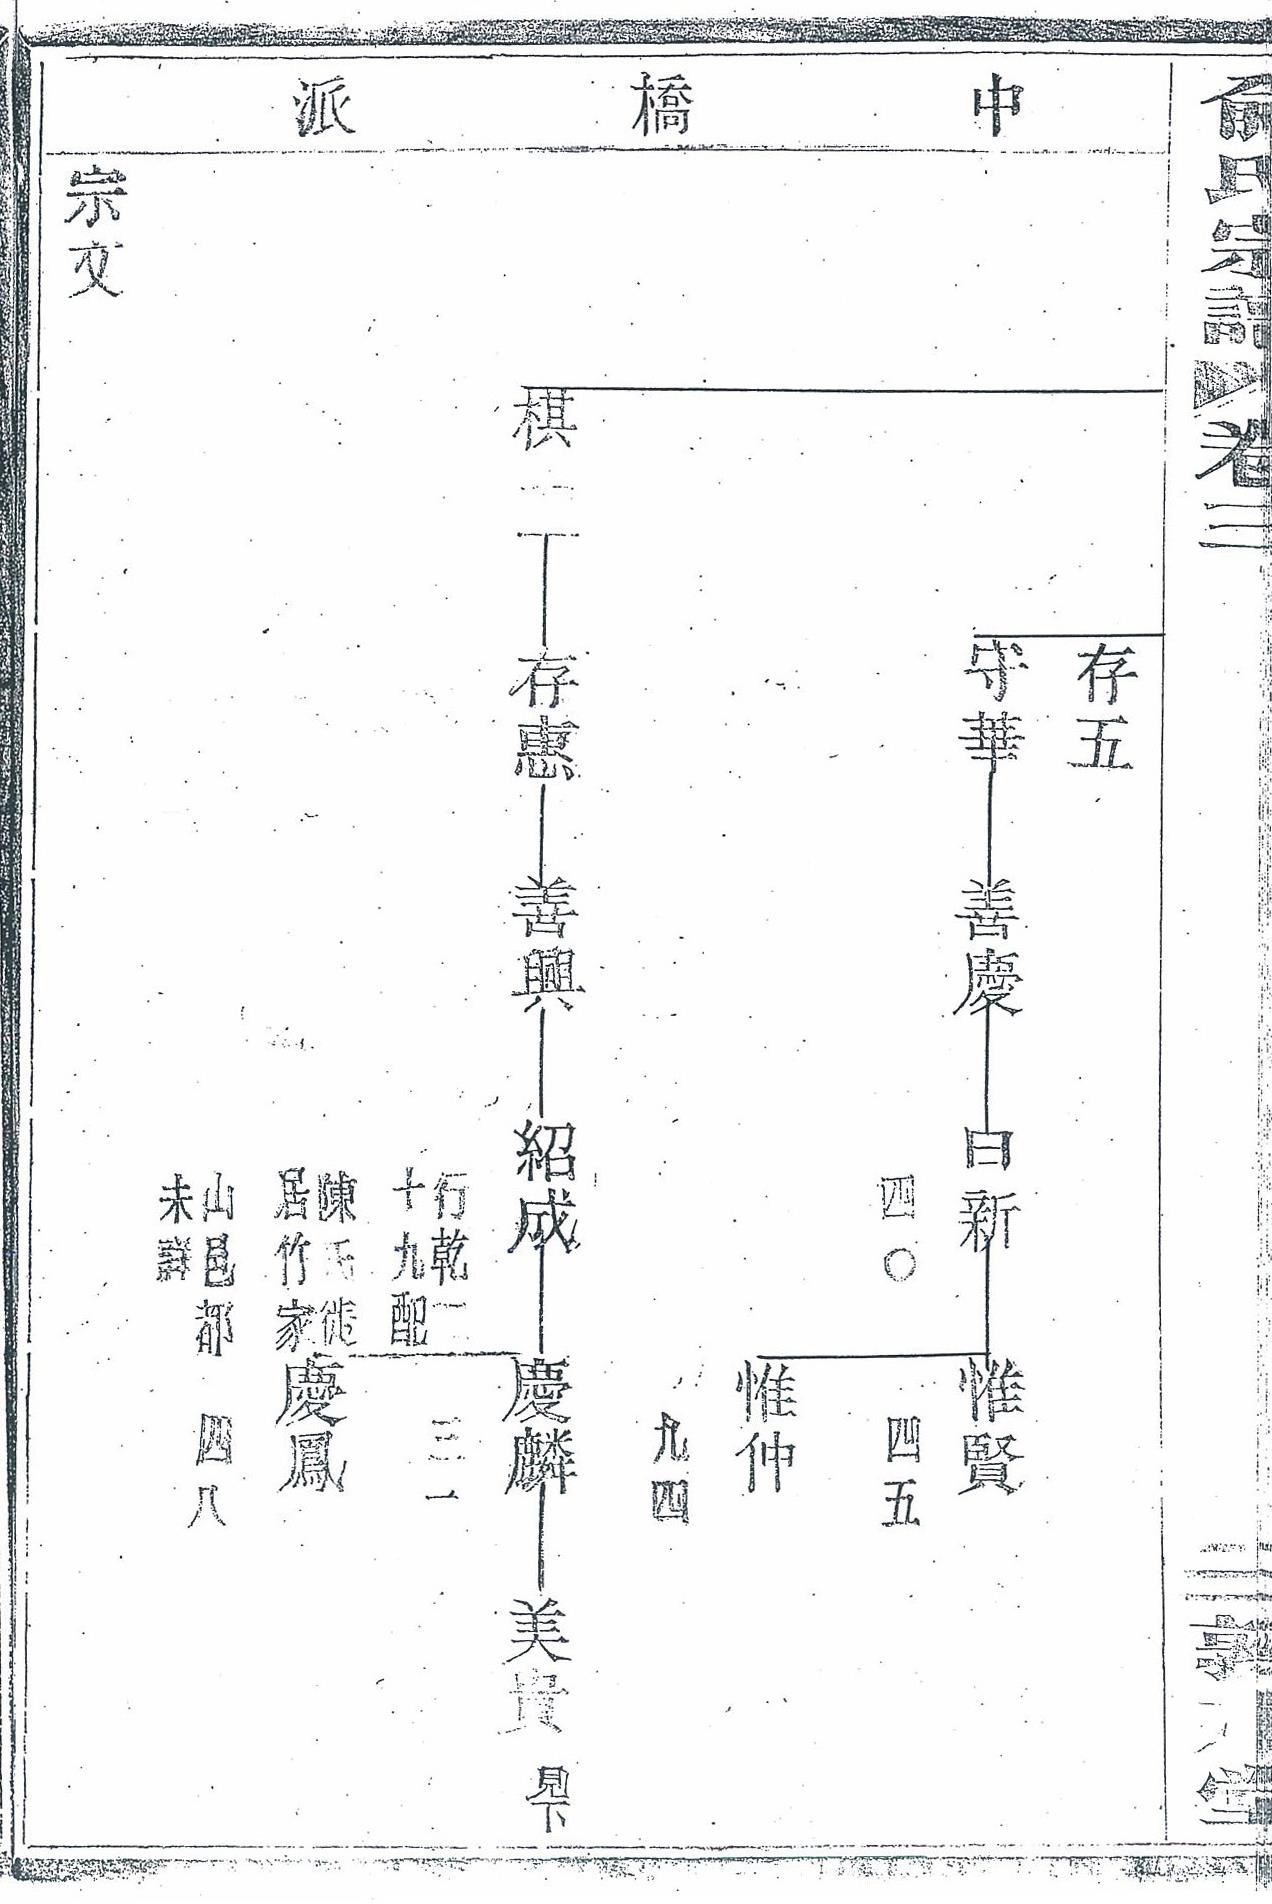 俞氏宗譜 卷三
三
中橋派
存五
守華 善慶 日新 惟賢
四〇
四五
惟仲
九四
棋二 存惠 善興 紹成 慶麟 美貴 見下
三一
行乾二
十九配
陳氏徙
居竹家
山邑都
未詳
慶鳳
四八
宗文